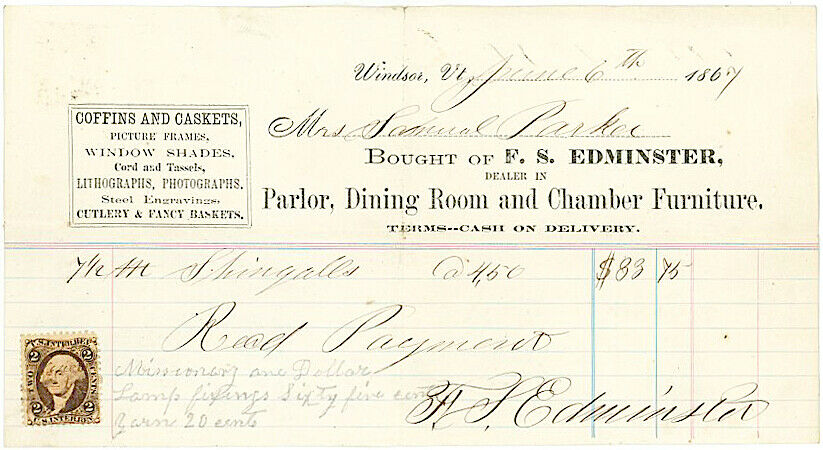 Windsor, Vt, June 6th 1867
Mrs Samuel Parker
COFFINS AND CASKETS,
PICTURE FRAMES,
WINDOW SHADES,
Cord and Tassels,
LITHOGRAPHS, PHOTOGRAPHS,
Steel Engravings,
CUTLERY & FANCY BASKETS.
BOUGHT OF F. S. EDMINSTER,
DEALER IN
Parlor, Dining Room and Chamber Furniture.
TERMS--CASH ON DELIVERY.
7½ M Shingalls @ 4,50 $33 75
Recd Payment
F. S. Edminster
U.S. INTER. REV.
2 2
TWO CENTS
2 2
Missionary one Dollar
Lamp fixings Sixty five cents
Yarn 20 cents